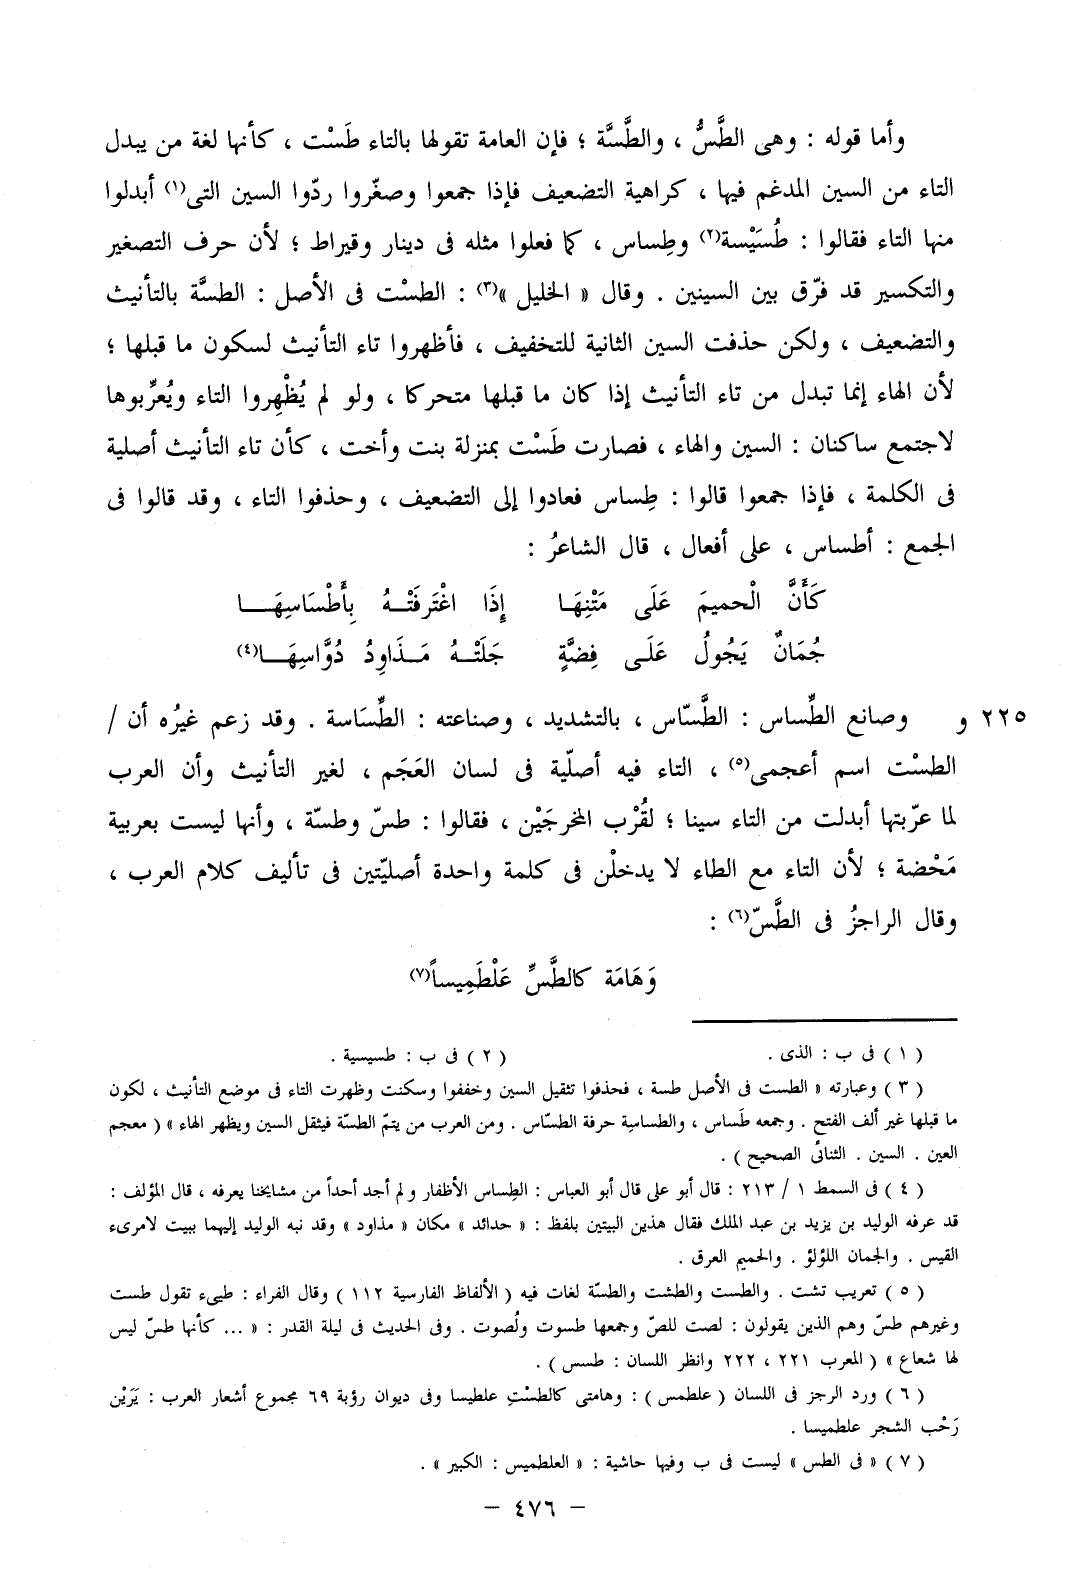 وأما قوله : وهى الطَّسُّ ، والطَّسَّة ؛ فإن العامة تقولها بالتاء طَسْت ، كأنها لغة من يبدل
التاء من السين المدغم فيها ، كراهية التضعيف فإذا جمعوا وصغّروا ردّوا السين التى(١) أبدلوا
منها التاء فقالوا : طُسَيْسة(٢) وطِساس ، كما فعلوا مثله فى دينار وقيراط ؛ لأن حرف التصغير
والتكسير قد فرّق بين السينين . وقال « الخليل »(٣) : الطسْت فى الأصل : الطسَّة بالتأنيث
والتضعيف ، ولكن حذفت السين الثانية للتخفيف ، فأظهروا تاء التأنيث لسكون ما قبلها ؛
لأن الهاء إنما تبدل من تاء التأنيث إذا كان ما قبلها متحركا ، ولو لم يُظْهِروا التاء ويُعرِّبوها
لاجتمع ساكنان : السين والهاء ، فصارت طَسْت بمنزلة بنت وأخت ، كأن تاء التأنيث أصلية
فى الكلمة ، فإذا جمعوا قالوا : طِساس فعادوا إلى التضعيف ، وحذفوا التاء ، وقد قالوا فى
الجمع : أطساس ، على أفعال ، قال الشاعرُ :
كَأَنَّ الْحميمَ عَلَى مَتْنِهَا إِذَا اغْتَرفَتْهُ بِأَطْسَاسِهَا
جُمَانٌ يَجُولُ عَلَى فِضَّةٍ جَلَتْهُ مَذَاوِدُ دُوَّاسِهَا(٤)
٢٢٥ و وصانع الطِّساس : الطَّسّاس ، بالتشديد ، وصناعته : الطِّسَاسة . وقد زعم غيرُه أن /
الطسْت اسم أعجمى(٥) ، التاء فيه أصلّية فى لسان العَجَم ، لغير التأنيث وأن العرب
لما عرّبتها أبدلت من التاء سينا ؛ لقُرْب المخرجَيْن ، فقالوا : طسّ وطسّة ، وأنها ليست بعربية
مَحْضة ؛ لأن التاء مع الطاء لا يدخلْن فى كلمة واحدة أصليّتين فى تأليف كلام العرب ،
وقال الراجزُ فى الطَّسّ(٦) :
وَهَامَة كالطَّسِّ عَلْطَمِيساً(٧)
( ١ ) فى ب : الذى . ( ٢ ) فى ب : طسيسية .
( ٣ ) وعبارته « الطست فى الأصل طسة ، فحذفوا تثقيل السين وخففوا وسكنت وظهرت التاء فى موضع التأنيث ، لكون
ما قبلها غير ألف الفتح . وجمعه طَساس ، والطساسية حرفة الطسّاس . ومن العرب من يتمّ الطسّة فيثقل السين ويظهر الهاء » ( معجم
العين . السين . الثنائى الصحيح ) .
( ٤ ) فى السمط ١ / ٢١٣ : قال أبو على قال أبو العباس : الطِساس الأظفار ولم أجد أحداً من مشايخنا يعرفه ، قال المؤلف :
قد عرفه الوليد بن يزيد بن عبد الملك فقال هذين البيتين بلفظ : « حدائد » مكان « مذاود » وقد نبه الوليد إليهما ببيت لامرىء
القيس . والجمان اللؤلؤ . والحميم العرق .
( ٥ ) تعريب تشت . والطست والطشت والطسّة لغات فيه ( الألفاظ الفارسية ١١٢ ) وقال الفراء : طيىء تقول طست
وغيرهم طسّ وهم الذين يقولون : لصت للصّ وجمعها طسوت ولُصوت . وفى الحديث فى ليلة القدر : « ... كأنها طسّ ليس
لها شعاع » ( المعرب ٢٢١ ، ٢٢٢ وانظر اللسان : طسس ) .
( ٦ ) ورد الرجز فى اللسان ( علطمس ) : وهامتى كالطسْتِ علطيسا وفى ديوان رؤبة ٦٩ مجموع أشعار العرب : يَرَيْن
رَحْب الشجر علطميسا .
( ٧ ) « فى الطس » ليست فى ب وفيها حاشية : « العلطميس : الكبير » .
– ٤٧٦ –